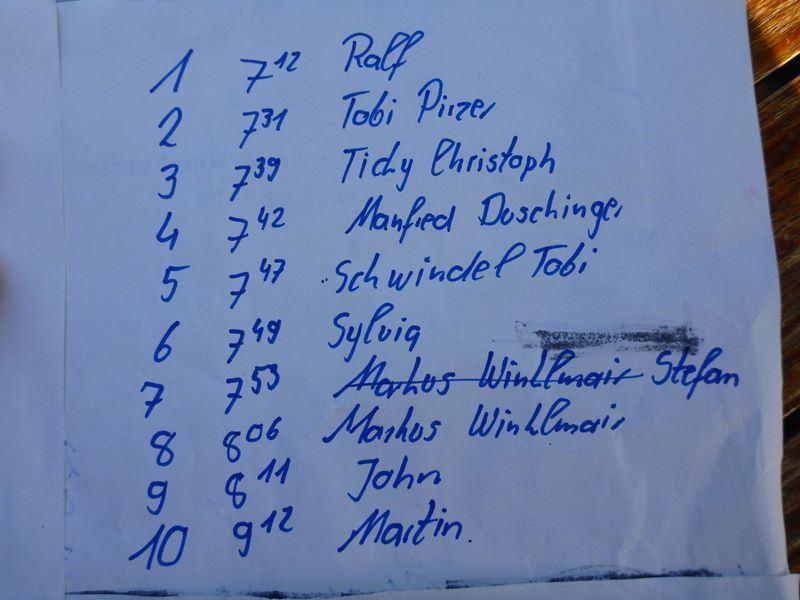 1 7 12 Ralf
2 7 31 Tobi Pirzer
3 7 39 Tichy Christoph
4 7 42 Manfred Duschinger
5 7 47 Schwindel Tobi
6 7 49 Sylvia
7 7 53 Markus Winklmair Stefan
8 8 06 Markus Winklmair
9 8 11 John
10 9 12 Martin.